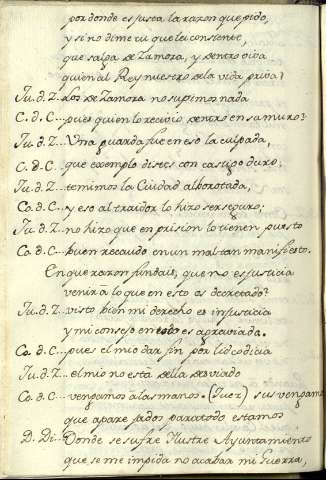 por donde es justa la razon que pido,
y si no dime tu que lei consiente,
que salga de Zamora, y dentro viva
quien al Rey nuestro de la vida priva?
Ju. d. Z. Los de Zamora no supimos nada
C. d. C... pues quien lo recivio dentro en su muro?
Ju. d. Z.. Una guarda fue en eso la culpada,
C. d. C... que exemplo disteis con castigo duro;
Ju. d. Z.. temimos la Ciudad alborotada,
Co. d. C... y eso al traidor lo hizo ser seguro;
Ju. d. Z.. no hizo que en prision lo tienen puesto
Co. d. C.. buen recaudo en un mal tan manifiesto.
En que razon fundais, que no es justicia
venir a lo que en esto es decretado?
Ju. d. Z.. visto bien mi derecho es injusticia
y mi consejo en esto es agraviada.
Co. d. C... pues el mio dar fin por lid codicia
Ju. d. Z... el mio no está de ella desviado
Co. d. C... vengamos a las manos. (Juez) sus vengamos
que aparejados para todo estamos
D. Di... Donde se sufre Ilustre Ayuntamiento
que se me impida no acabar mi Guerra,